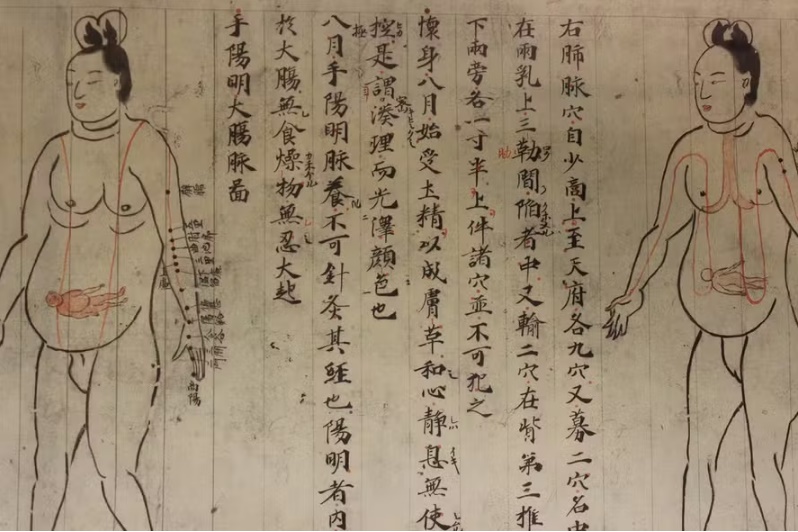 右肺脉穴自少商上至天府各九穴又募二穴名中
在兩乳上三勒間陷者中又輸二穴在背第三椎
下兩旁各一寸半上件諸穴並不可犯之
懷身八月始受土精以成膚草和心靜息無使
控是謂湊理而光澤顏色也
極
八月手陽明脉養不可針灸其經也陽明者内
於大腸無食燥物無忍大起
手陽明大腸脉圖
商陽